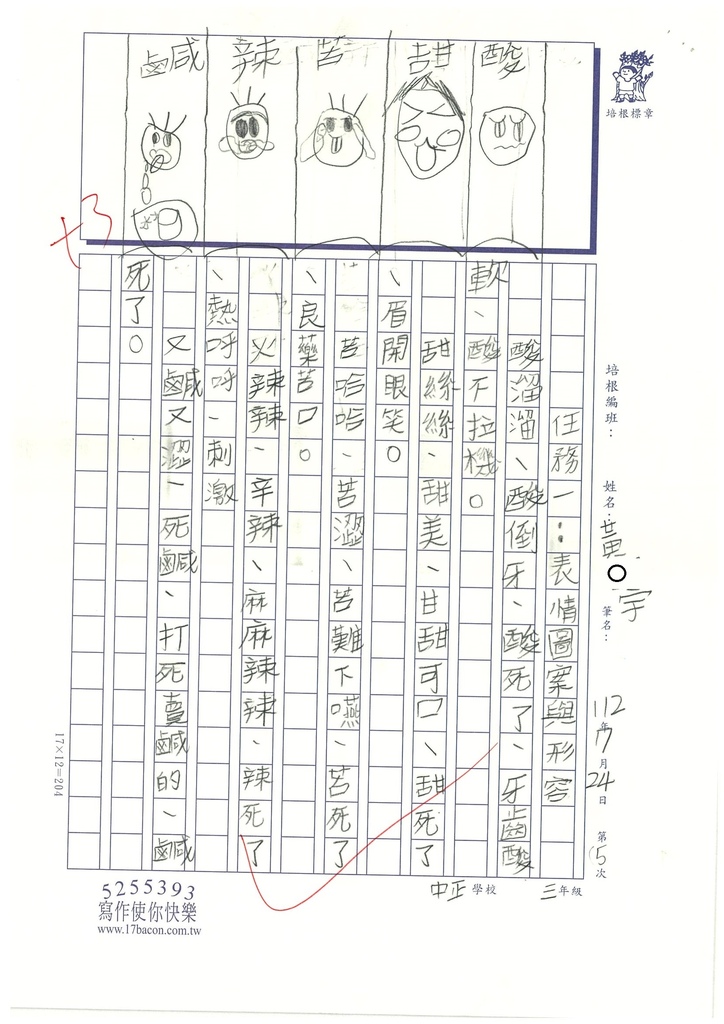 酸
甜
苦
辣
鹹
培根標章
+3
任務一：表情圖案與形容
酸溜溜、酸倒牙、酸死了、牙齒酸
軟、酸不拉機。
甜絲絲、甜美、甘甜可口、甜死了
、眉開眼笑。
苦哈哈、苦澀、苦難下嚥、苦死了
、良藥苦口。
火辣辣、辛辣、麻麻辣辣、辣死了
、熱呼呼、刺激
又鹹又澀、死鹹、打死賣鹹的、鹹
死了。
培根編班：
姓名：黃 宇
筆名：
112年7月24日 第15次
中正學校 三年級
17×12=204
5255393
寫作使你快樂
www.17bacon.com.tw